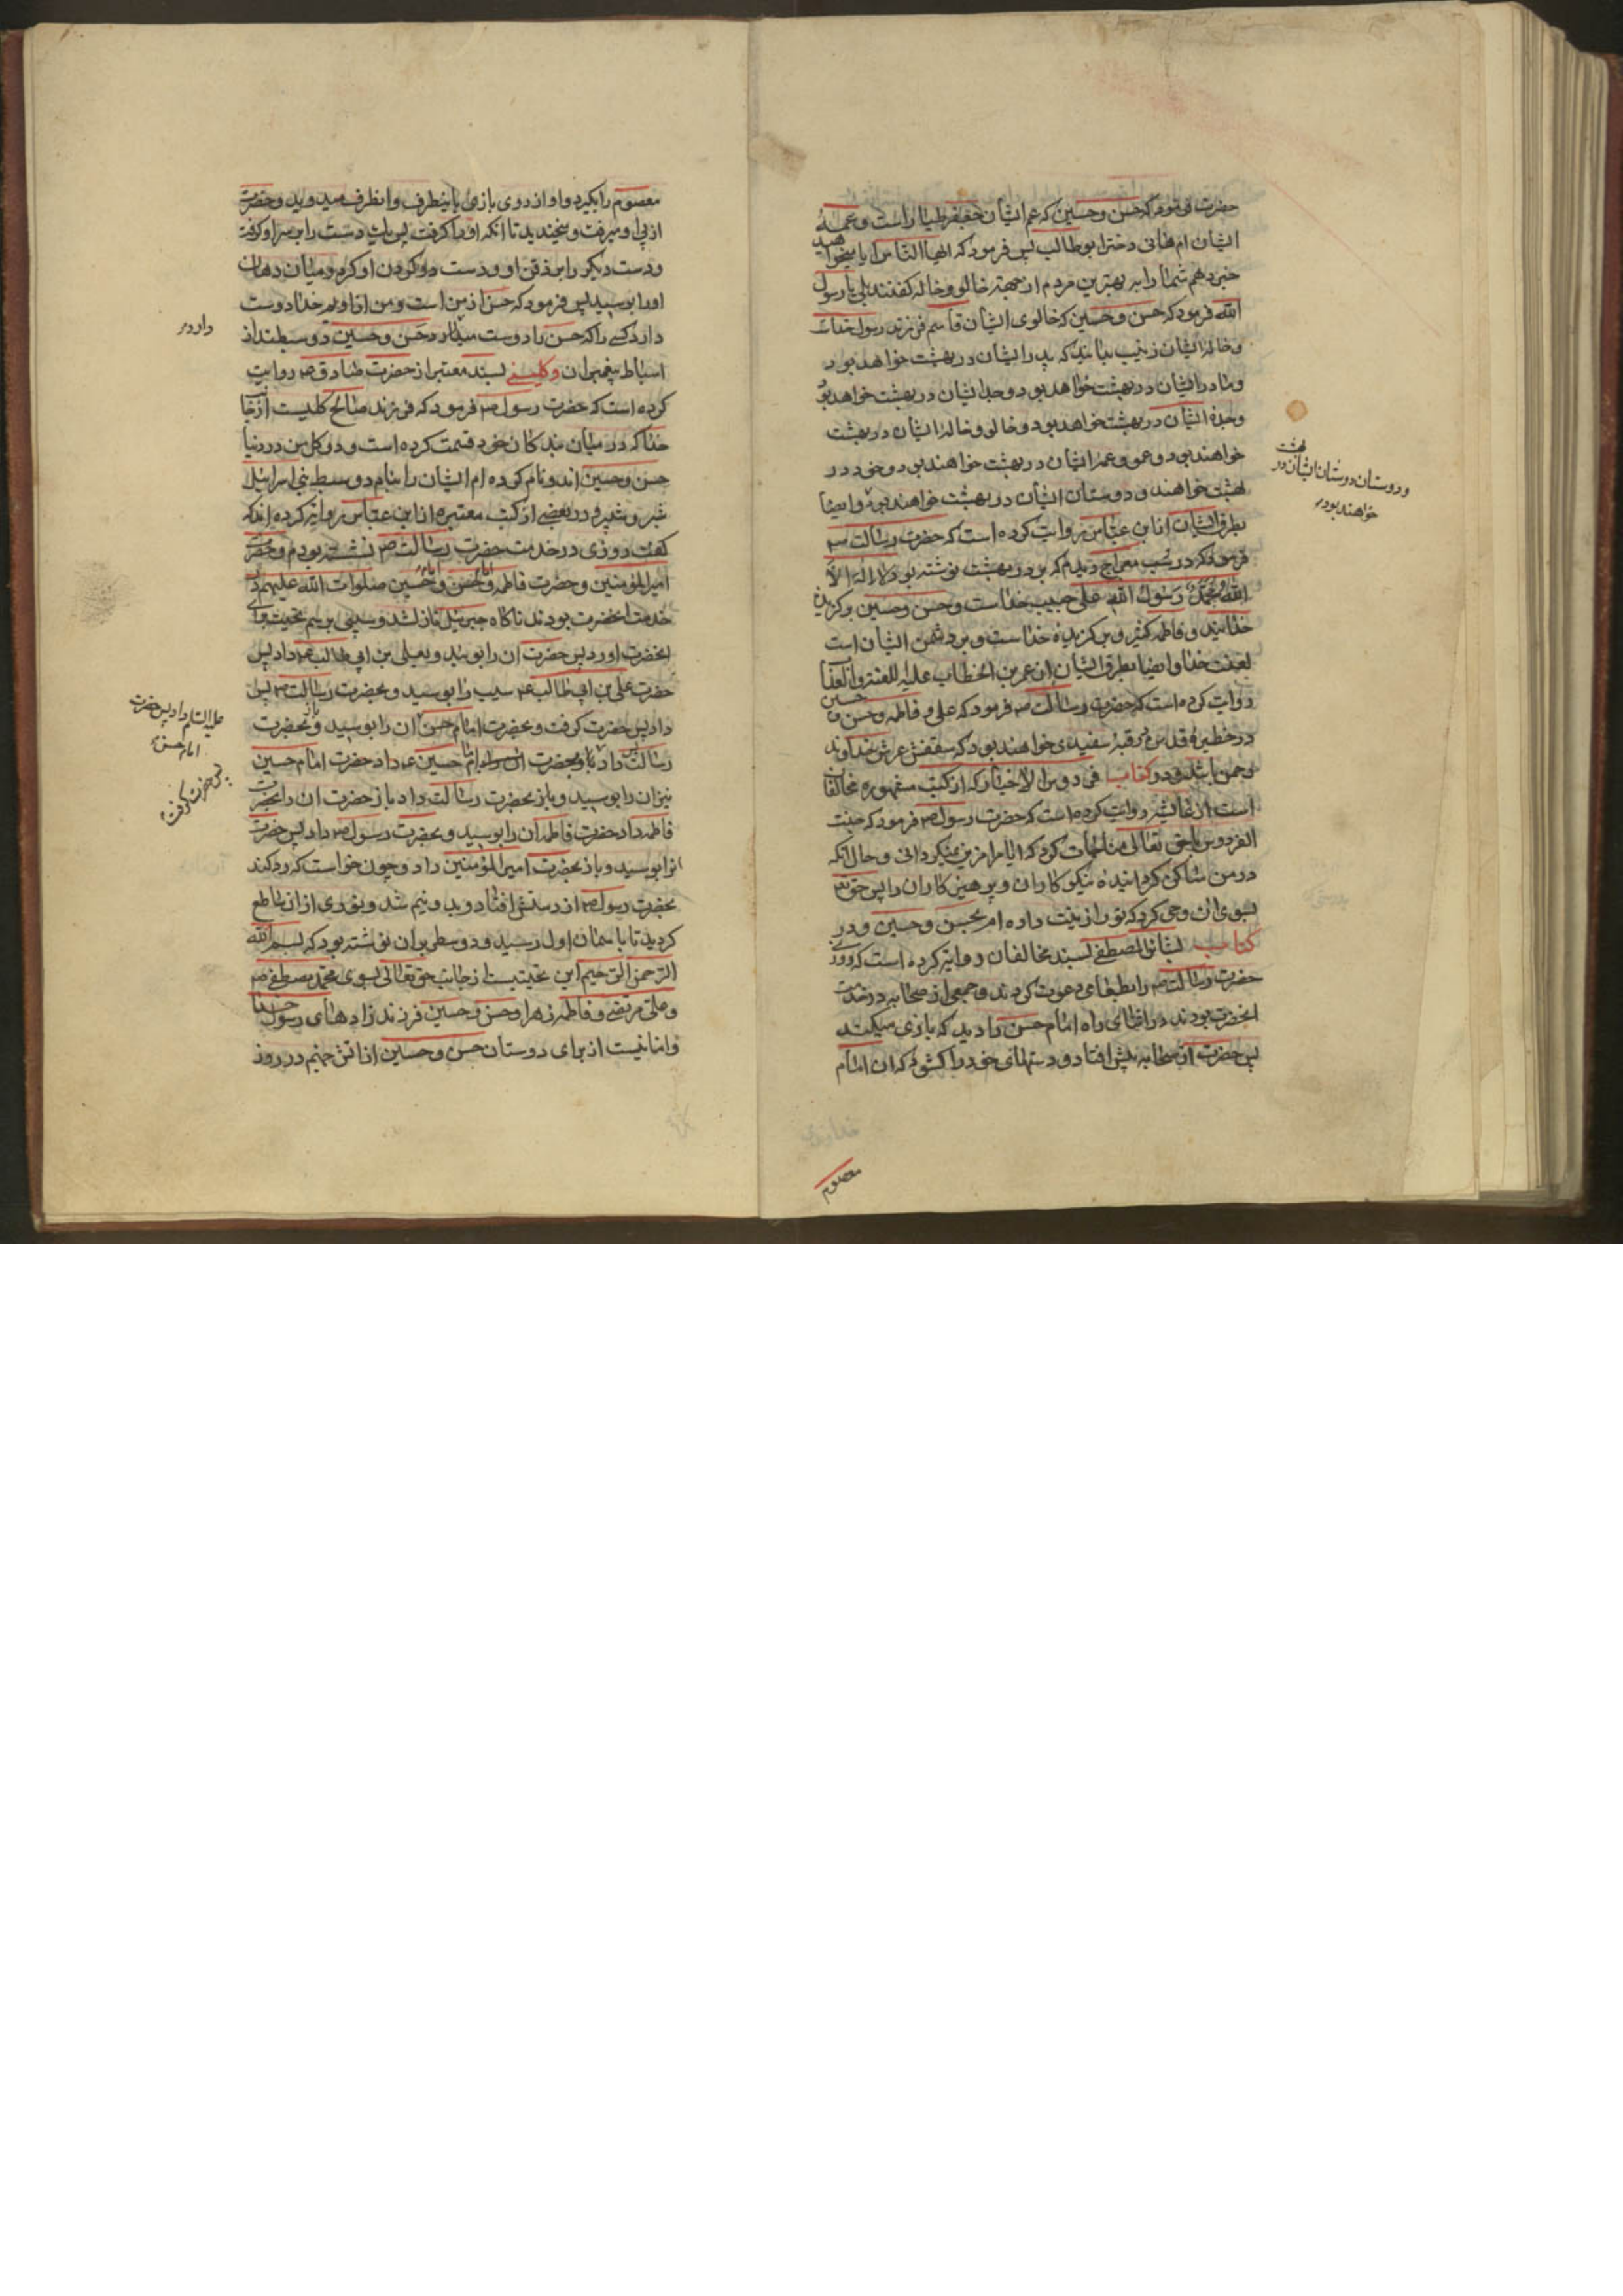 حضرت فرمود که حسن و حسین که عم ایشان جعفر طیار است و عمهٔ
ایشان ام هانی دختر ابوطالب پس فرمود که ایها الناس ایا میخواهید
خبر دهم شما را به بهترین مردم از جهة خالو و خاله کفتند بلی یا رسول
الله فرمود که حسن و حسین که خالوی ایشان قاسم فرزند رسول خداست
و خالهٔ ایشان زینب بدانید که پدر ایشان در بهشت خواهد بود
و مادر ایشان در بهشت خواهد بود و جد ایشان در بهشت خواهد بود
و جدهٔ ایشان در بهشت خواهد بود و خالو و خالهٔ ایشان در بهشت
خواهند بود و عمو و عمهٔ ایشان در بهشت خواهند بود و خود در
بهشت خواهند و دوستان ایشان در بهشت خواهند بود و ایضا
و دوستان دوستان ایشان در بهشت
خواهند بود
بطرق ایشان از ابن عباس روایت کرده است که حضرت رسالت ص
فرمود که در شب معراج دیدم که بر در بهشت نوشته بود لا اله الا
الله و محمد رسول الله علی حبیب خداست و حسن و حسین برکزیدهٔ
خدایند و فاطمه کنیز و برکزیدهٔ خداست و بر دشمن ایشان است
لعنت خدا و ایضا بطرق ایشان از عمر بن الخطاب علیه اللعنة و العذاب
روایت کرده است که حضرت رسالت ص فرمود که علی و فاطمه و حسن و حسین
در حظیرهٔ قدس در قبهٔ سفیدی خواهند بود که سقفش عرش خداوند
رحمن باشد و در کتاب فردوس الاخبار که از کتب مشهوره مخالفان
است از عایشه روایت کرده است که حضرت رسول ص فرمود که جنت
الفردوس با حق تعالی مناجات کرد که ایا مرا مزین نمیکردانی و حال انکه
در من ساکن کردانیدهٔ نیکوکاران و پرهیزکاران را پس حق تع
بسوی ان وحی کرد که تو را زینت داده ام بحسن و حسین و در
کتاب بشائر المصطفی بسند مخالفان روایة کرده است که روزی
حضرت رسالت ص را بطعامی دعوت کردند و جمعی از صحابه در خدمت
انحضرت بودند در اثنای راه امام حسن را دید که بازی میکند
پس حضرت از صحابه پیش افتاد و دستهای خود را کشود که ان امام
معصوم
معصوم را بکیرد و او از روی بازی باینطرف و انطرف میدوید و حضرت
از پی او میرفت و میخندید تا انکه او را کرفت پس یک دست را بر سر او کرفت
و دست دیکر را بر ذقن او و دست در کردن او کرد و میان دهان
او را بوسید پس فرمود که حسن از من است و من از اویم خدا دوست
دارد کسی را که حسن را دوست میدارد حسن و حسین دو سبطند از
دارد
اسباط پیغمبران و کلینی بسند معتبر از حضرت صادق ع روایت
کرده است که حضرت رسول ص فرمود که فرزند صالح کلیست از جانب
خدا که در میان بندکان خود قسمت کرده است و دو کل من در دنیا
حسن و حسین اند و نام کرده ام ایشان را بنام دو سبط بنی اسرائیل
شبر و شبیر و در بعضی از کتب معتبره از ابن عباس روایة کرده اند که
کفت روزی در خدمت حضرت رسالت ص نشسته بودم و حضرت
امیر المؤمنین و حضرت فاطمه و امام حسن و امام حسین صلوات الله علیهم در
خدمت انحضرت بودند ناکاه جبرئیل نازل شد و سیبی برسم تحیت برای
انحضرت اورد پس حضرت ان را بوسید و بعلی بن ابی طالب ع داد پس
حضرت علی بن ابی طالب ع سیب را بوسید و بحضرت رسالت ص پس
علیه السلم داد پس حضرت
امام حسن
داد پس حضرت کرفت و بحضرت امام حسن ان را بوسید و باز بحضرت
رسالت داد پس بحضرت امام حسین ع داد حضرت امام حسین
پس حضرت کرفت
نیز ان را بوسید و باز بحضرت رسالت داد باز حضرت ان را بحضرت
فاطمه داد حضرت فاطمه ان را بوسید و بحضرت رسول ص داد پس حضرت
انرا بوسید و باز بحضرت امیر المؤمنین داد و چون خواست که رد کند
بحضرت رسول ص از دستش افتاد و بدو نیم شد و نوری از ان ساطع
کردید تا باسمان اول رسید و دو سطر بران نوشته بود که بسم الله
الرحمن الرحیم این تحیتیست از جانب حق تعالی بسوی محمد مصطفی ص
و علی مرتضی و فاطمه زهرا و حسن و حسین فرزند زادهای رسول خدا
و امانیست از برای دوستان حسن و حسین از اتش جهنم در روز